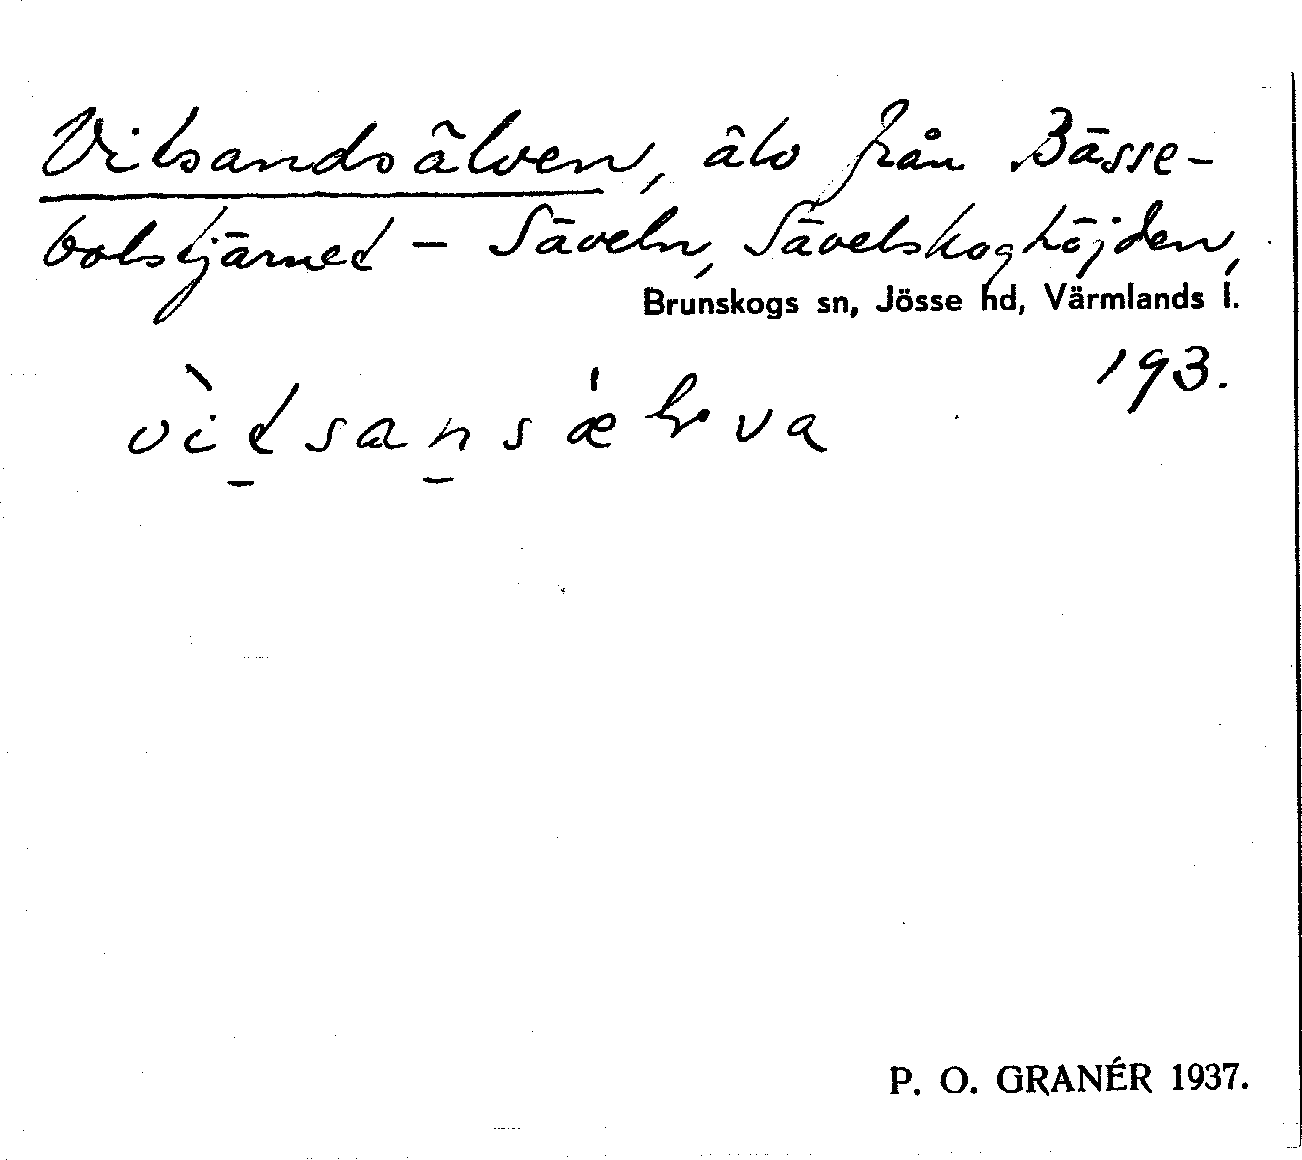 Vitsandsälven, älv från Bässe-
bolstjärnet – Säveln, Sävelskoghöjden,
Brunskogs sn, Jösse hd, Värmlands l.
193.
P. O. GRANÉR 1937.